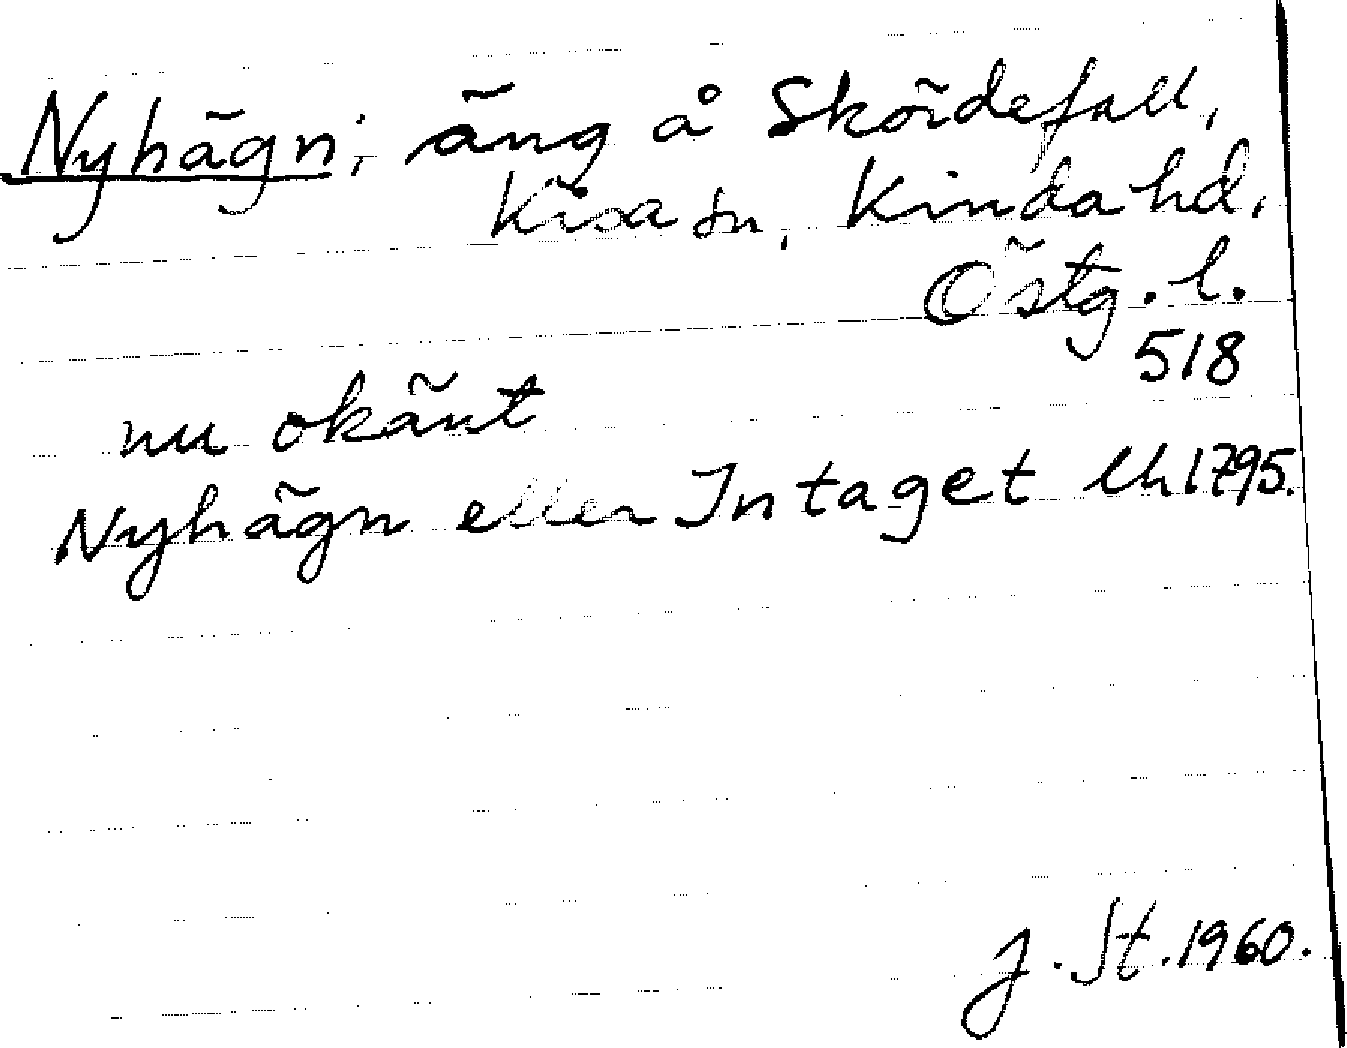 Nyhägn; äng å Sködefall,
Kisa sn, Kinda hd,
Östg. l.
518
nu okänt
Nyhägn eller Intaget Lh 1795.
J. St. 1960.